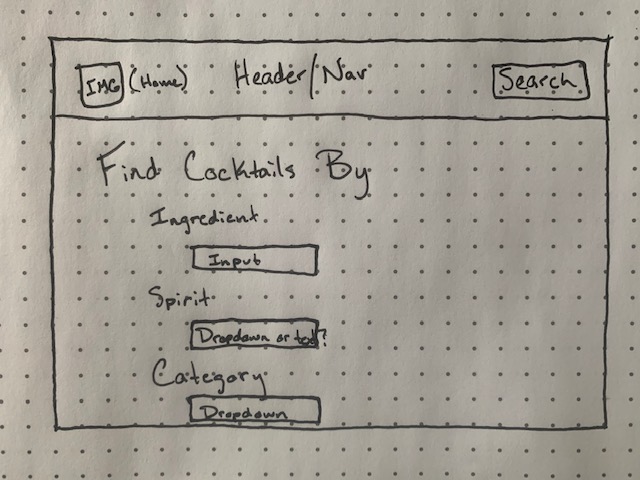 IMG (Home) Header/Nav Search
Find Cocktails By
Ingredient
Input
Spirit
Dropdown or text?
Category
Dropdown